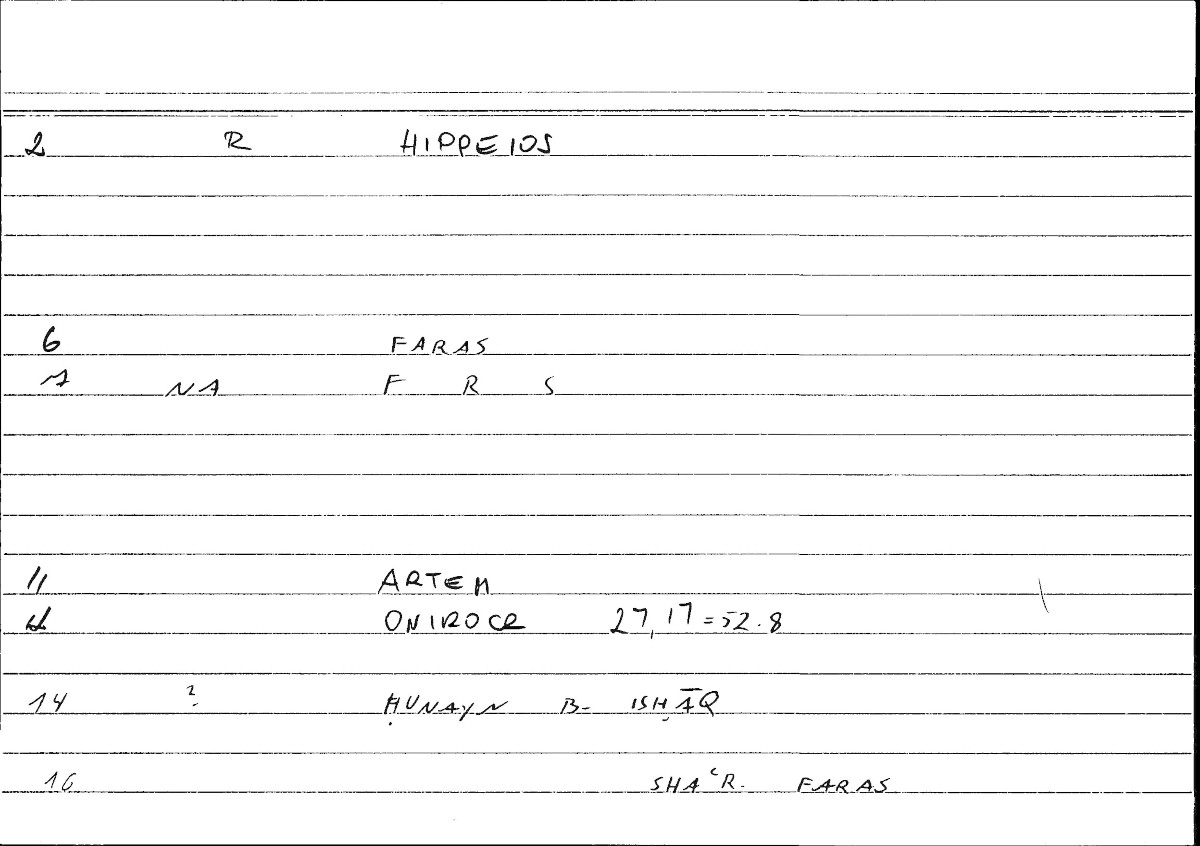 2 R HIPPEIOS
6 FARAS
7 NA F R S
11 ARTEM
12 ONIROCR 27,17 = 52.8
14 ? ḤUNAYN B- ISḤĀQ
16 SHAʿR. FARAS